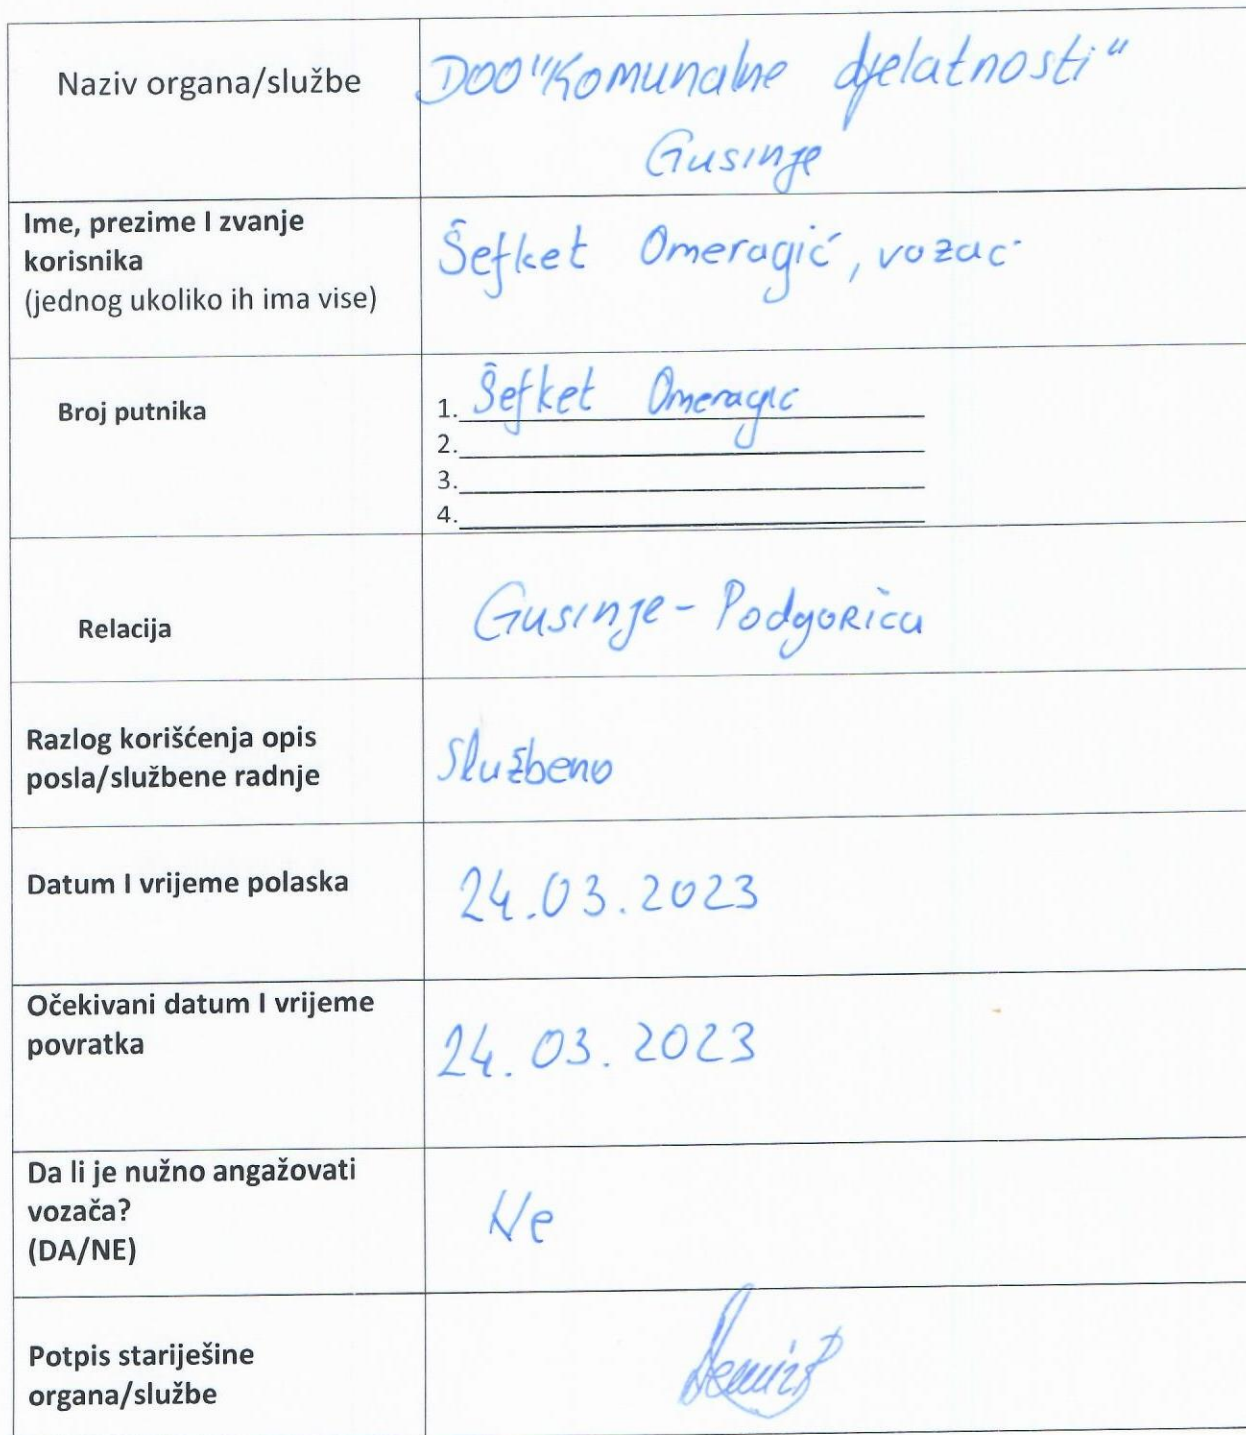 Naziv organa/službe
DOO "Komunalne djelatnosti"
Gusinje
Ime, prezime I zvanje
korisnika
(jednog ukoliko ih ima vise)
Šefket Omeragić, vozač
Broj putnika
1. Šefket Omeragic
2.
3.
4.
Relacija
Gusinje - Podgorica
Razlog korišćenja opis
posla/službene radnje
Službeno
Datum I vrijeme polaska
24.03.2023
Očekivani datum I vrijeme
povratka
24.03.2023
Da li je nužno angažovati
vozača?
(DA/NE)
Ne
Potpis starješine
organa/službe